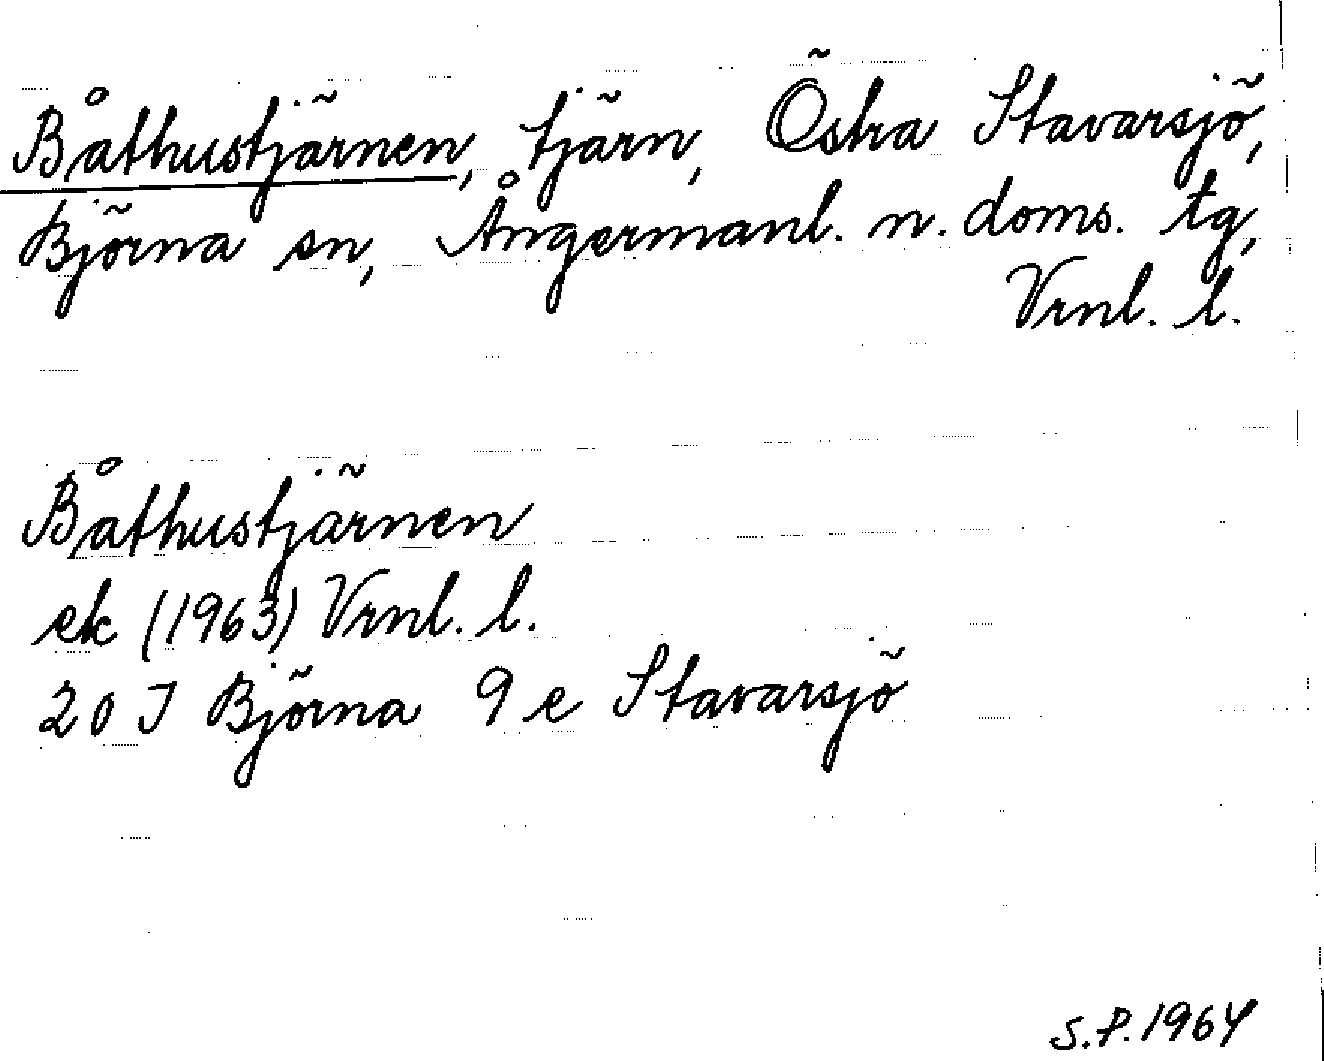 Båthustjärnen, tjärn, Östra Stavarsjö,
Björna sn, Ångermanl. n. doms. tg,
Vrnl. l.
Båthustjärnen
ek (1963) Vrnl. l.
20 J Björna 9 e Stavarsjö
S.P. 1964